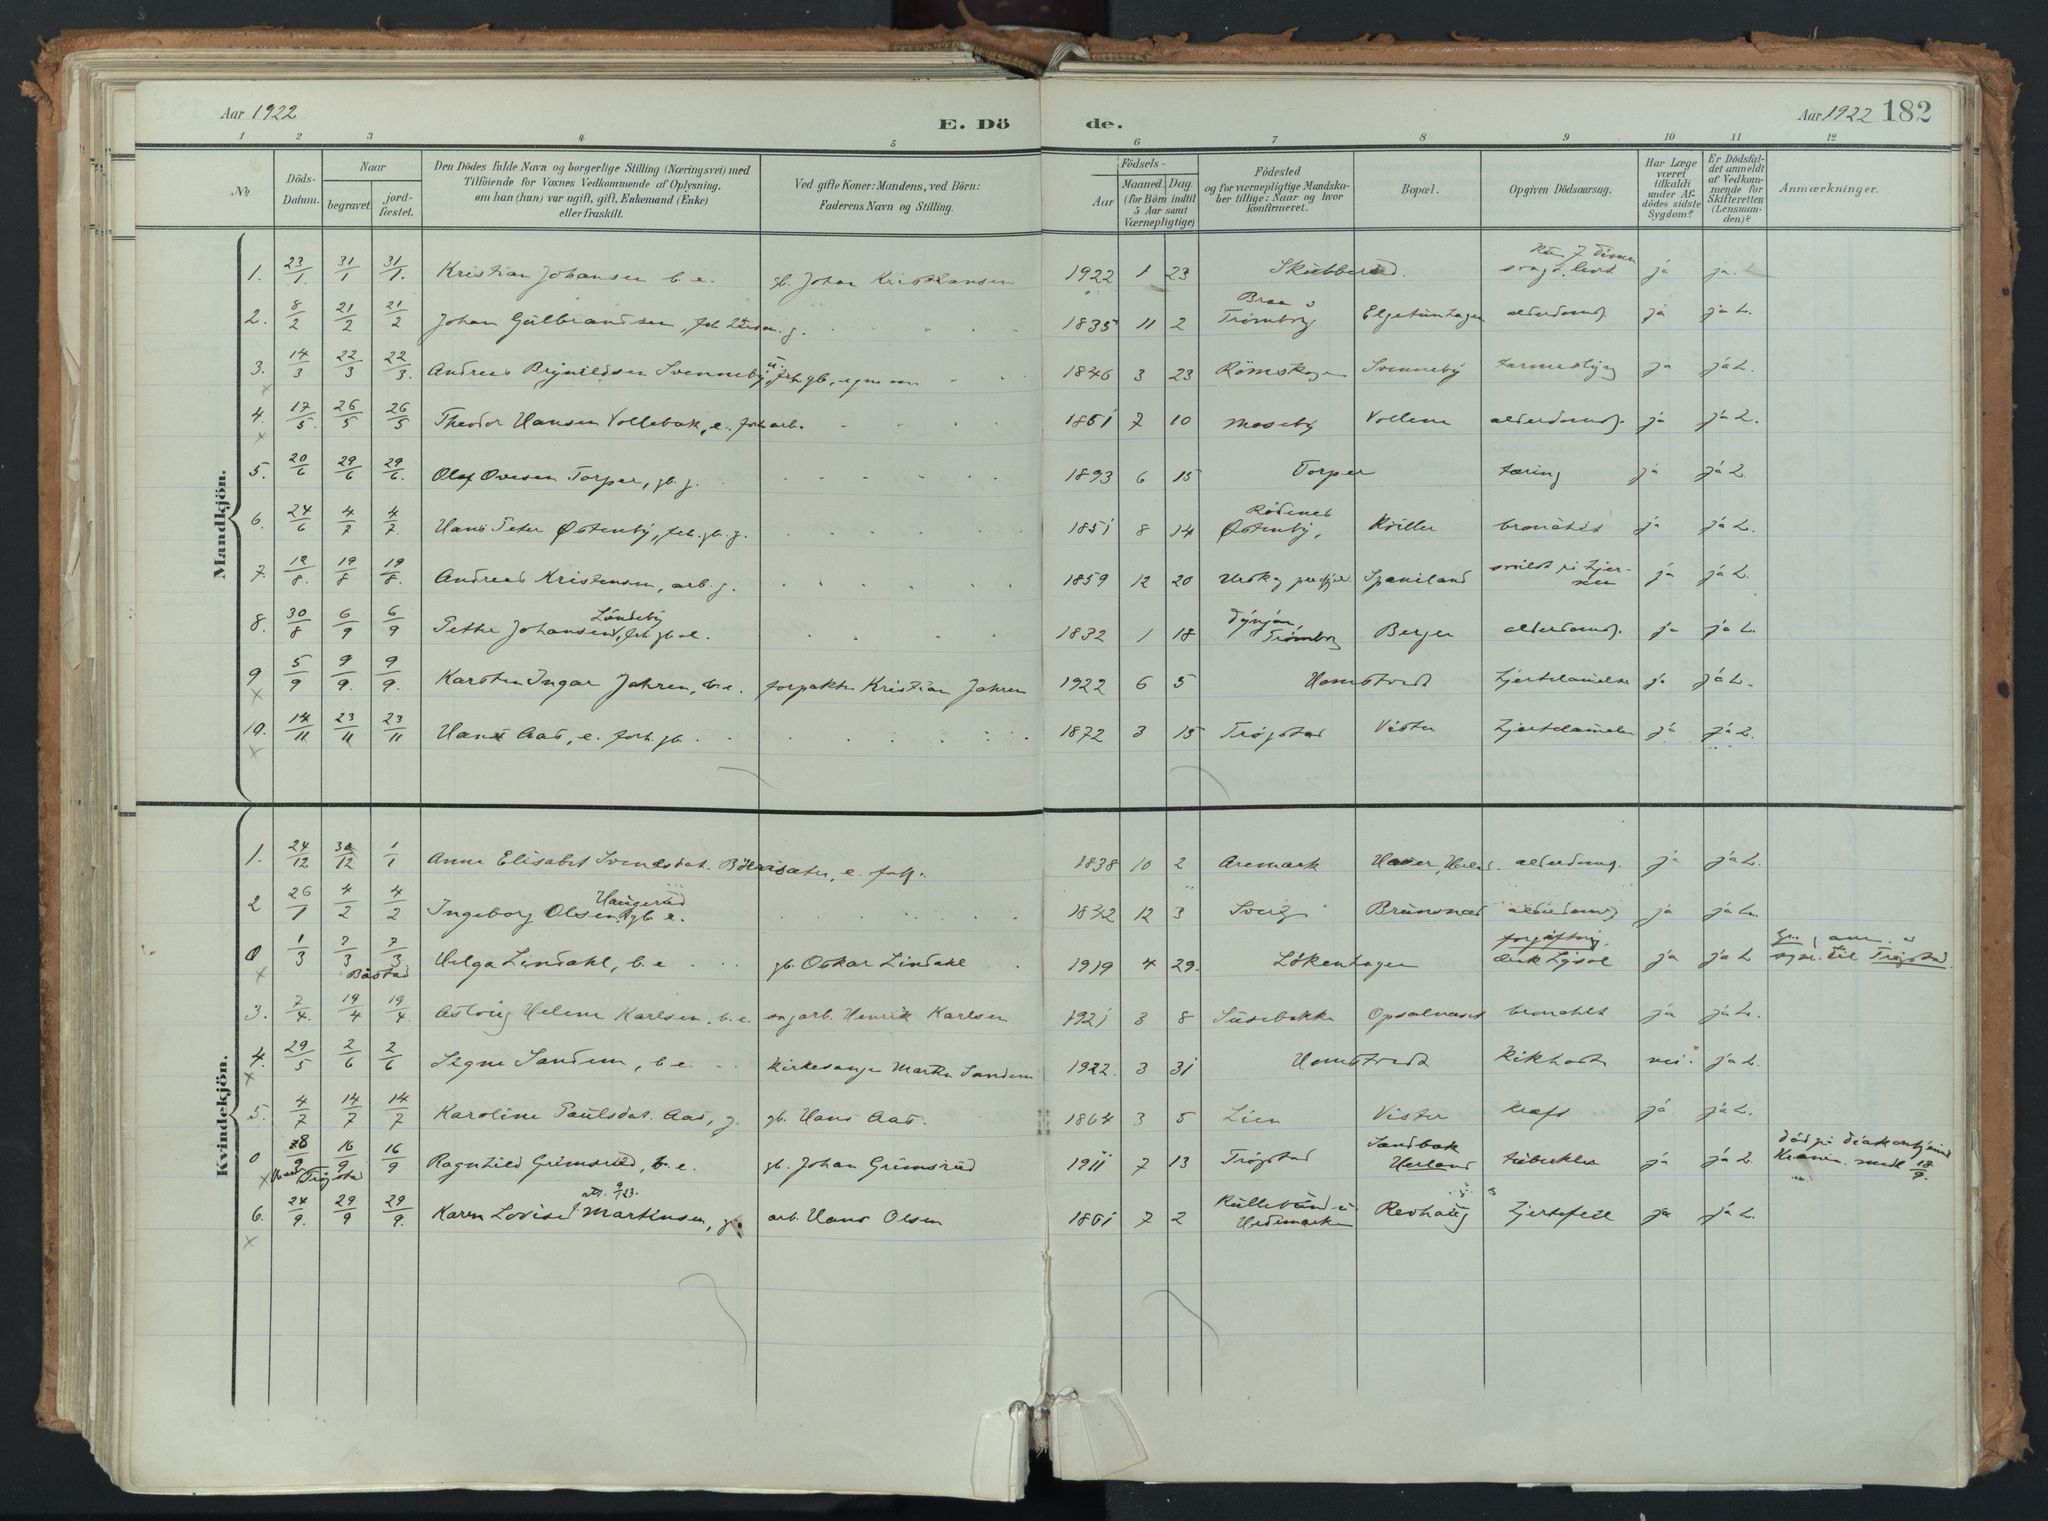 Aar 1922
E. Dö de.
Aar 1922 182
1 2 3 4 5 6 7 8 9 10 11 12
No
Döds-Datum.
Naar begravet. jordfæstet.
Den Dödes fulde Navn og borgerlige Stilling (Næringsvei) med
Tilföiende for Voxnes Vedkommende af Oplysning,
om han (hun) var ugift, gift, Enkemand (Enke)
eller fraskilt.
Ved gifte Koner: Mandens, ved Börn:
Faderens Navn og Stilling.
Födsels-
Aar
Maaned. Dag.
(for Börn indtil
5 Aar samt
Værnepligtige)
Födested
og for værnepligtige Mandska-
ber tillige: Naar og hvor
konfirmeret.
Bopæl.
Opgiven Dödsaarsag.
Har Læge
været
tilkaldt
under Af-
dödes sidste
Sygdom?
Er Dödsfal-
det anmeldt
af Vedkom-
mende for
Skifteretten
(Lensman-
den)?
Anmærkninger.
Mandkjön.
1. 23/1 31/1 31/1. Kristian Johansen b. e. gb. Johan Kristiansen 1922 1 23 Skubberud. svagt. livt ja ja.
2. 8/2 21/2 21/2 Johan Gulbrandsen, g. 1835 11 2 Braa Trømborg alderdoms. ja ja L.
3. 14/3 22/3 22/3. Andreas Brynildsen Svenneby, 1846 3 23 Römskogen Svenneby ja ja L.
4. 17/5. 26/5 26/5 Theodor Hansen Vollebak, e. forh. arb. 1851 7 10 Moseby Vollene alderdoms. ja ja L.
5. 20/6 29/6 29/6. Olaf Ovesen Torper, gb. g. 1893 6 15 Torper tæring ja ja L.
6. 24/6 4/7 4/7. Hans Peter Østenby, feh. gb. g. 1851 8 14 Rödenes Østenby, bronchit ja ja L.
7. 12/8. 19/8 19/8. Andreas Kristensen, arb. g. 1859 12 20 Spaniland ja ja L.
8. 30/8 6/9 6/9 Petter Johansen Lundeby, feh. gb. e. 1832 1 18 Trømborg Berger alderdoms. ja ja L.
9 5/9 9/9. 9/9. Karsten Ingar Jahren, b. e. forpakter Kristian Jahren 1922 6 5 Homstvedt hjertelamelse ja ja L.
10. 14/11 23/11 23/11 Hans Aas, e. forh. gb. 1872 3 15 Trøgstad Vister hjertelamelse ja ja L.
Kvindekjön.
1. 24/12 30/12 1/1 Anne Elisabet Svendsdat. Bøensæter, e. 1838 10 2 Aremark alderdoms. ja ja L.
2 26/1 4/2 4/2 Ingeborg Olsen Haugerud, gb. e. 12 3 Sverig Brunsnes alderdoms ja ja L.
0 1/3 7/3 7/3 Båstad Helga Lindahl, b. e gb. Oskar Lindahl 1919 4 29. Løkenhagen forgiftnig, drak Lysol ja ja L til Trøgstad.
3. 7/4. 19/4 19/4. Astrig Helene Karlsen, b. e. sagarb. Henrik Karlsen 1921 3 8 Susebakke Opsalnæset bronchit ja ja L.
4. 29/5 2/6 2/6 Signe Sandem, b e kirkesanger Martin Sandem 1922. 3 31 Homstvedt Kikhoste nei ja L.
5. 4/7 14/7 14/7 Karoline Paulsdat. Aas, g. gb. Hans Aas. 1864 3 5 Lien Vister Kræft ja ja L.
0 8/9 16/9. 16/9 Trøgstad Ragnhild Grimsrud, b. e. gb. Johan Grimsrud 1911 7 13 Trøgstad Sandbæk Herland tuberklose ja ja L.
6. 24/9. 29/9 29/9. Karen Lovise Martinsen, g. arb. Hans Olsen 1861 7 2 Kullebund Hedemarken Revhaug hjertefeil ja ja L.